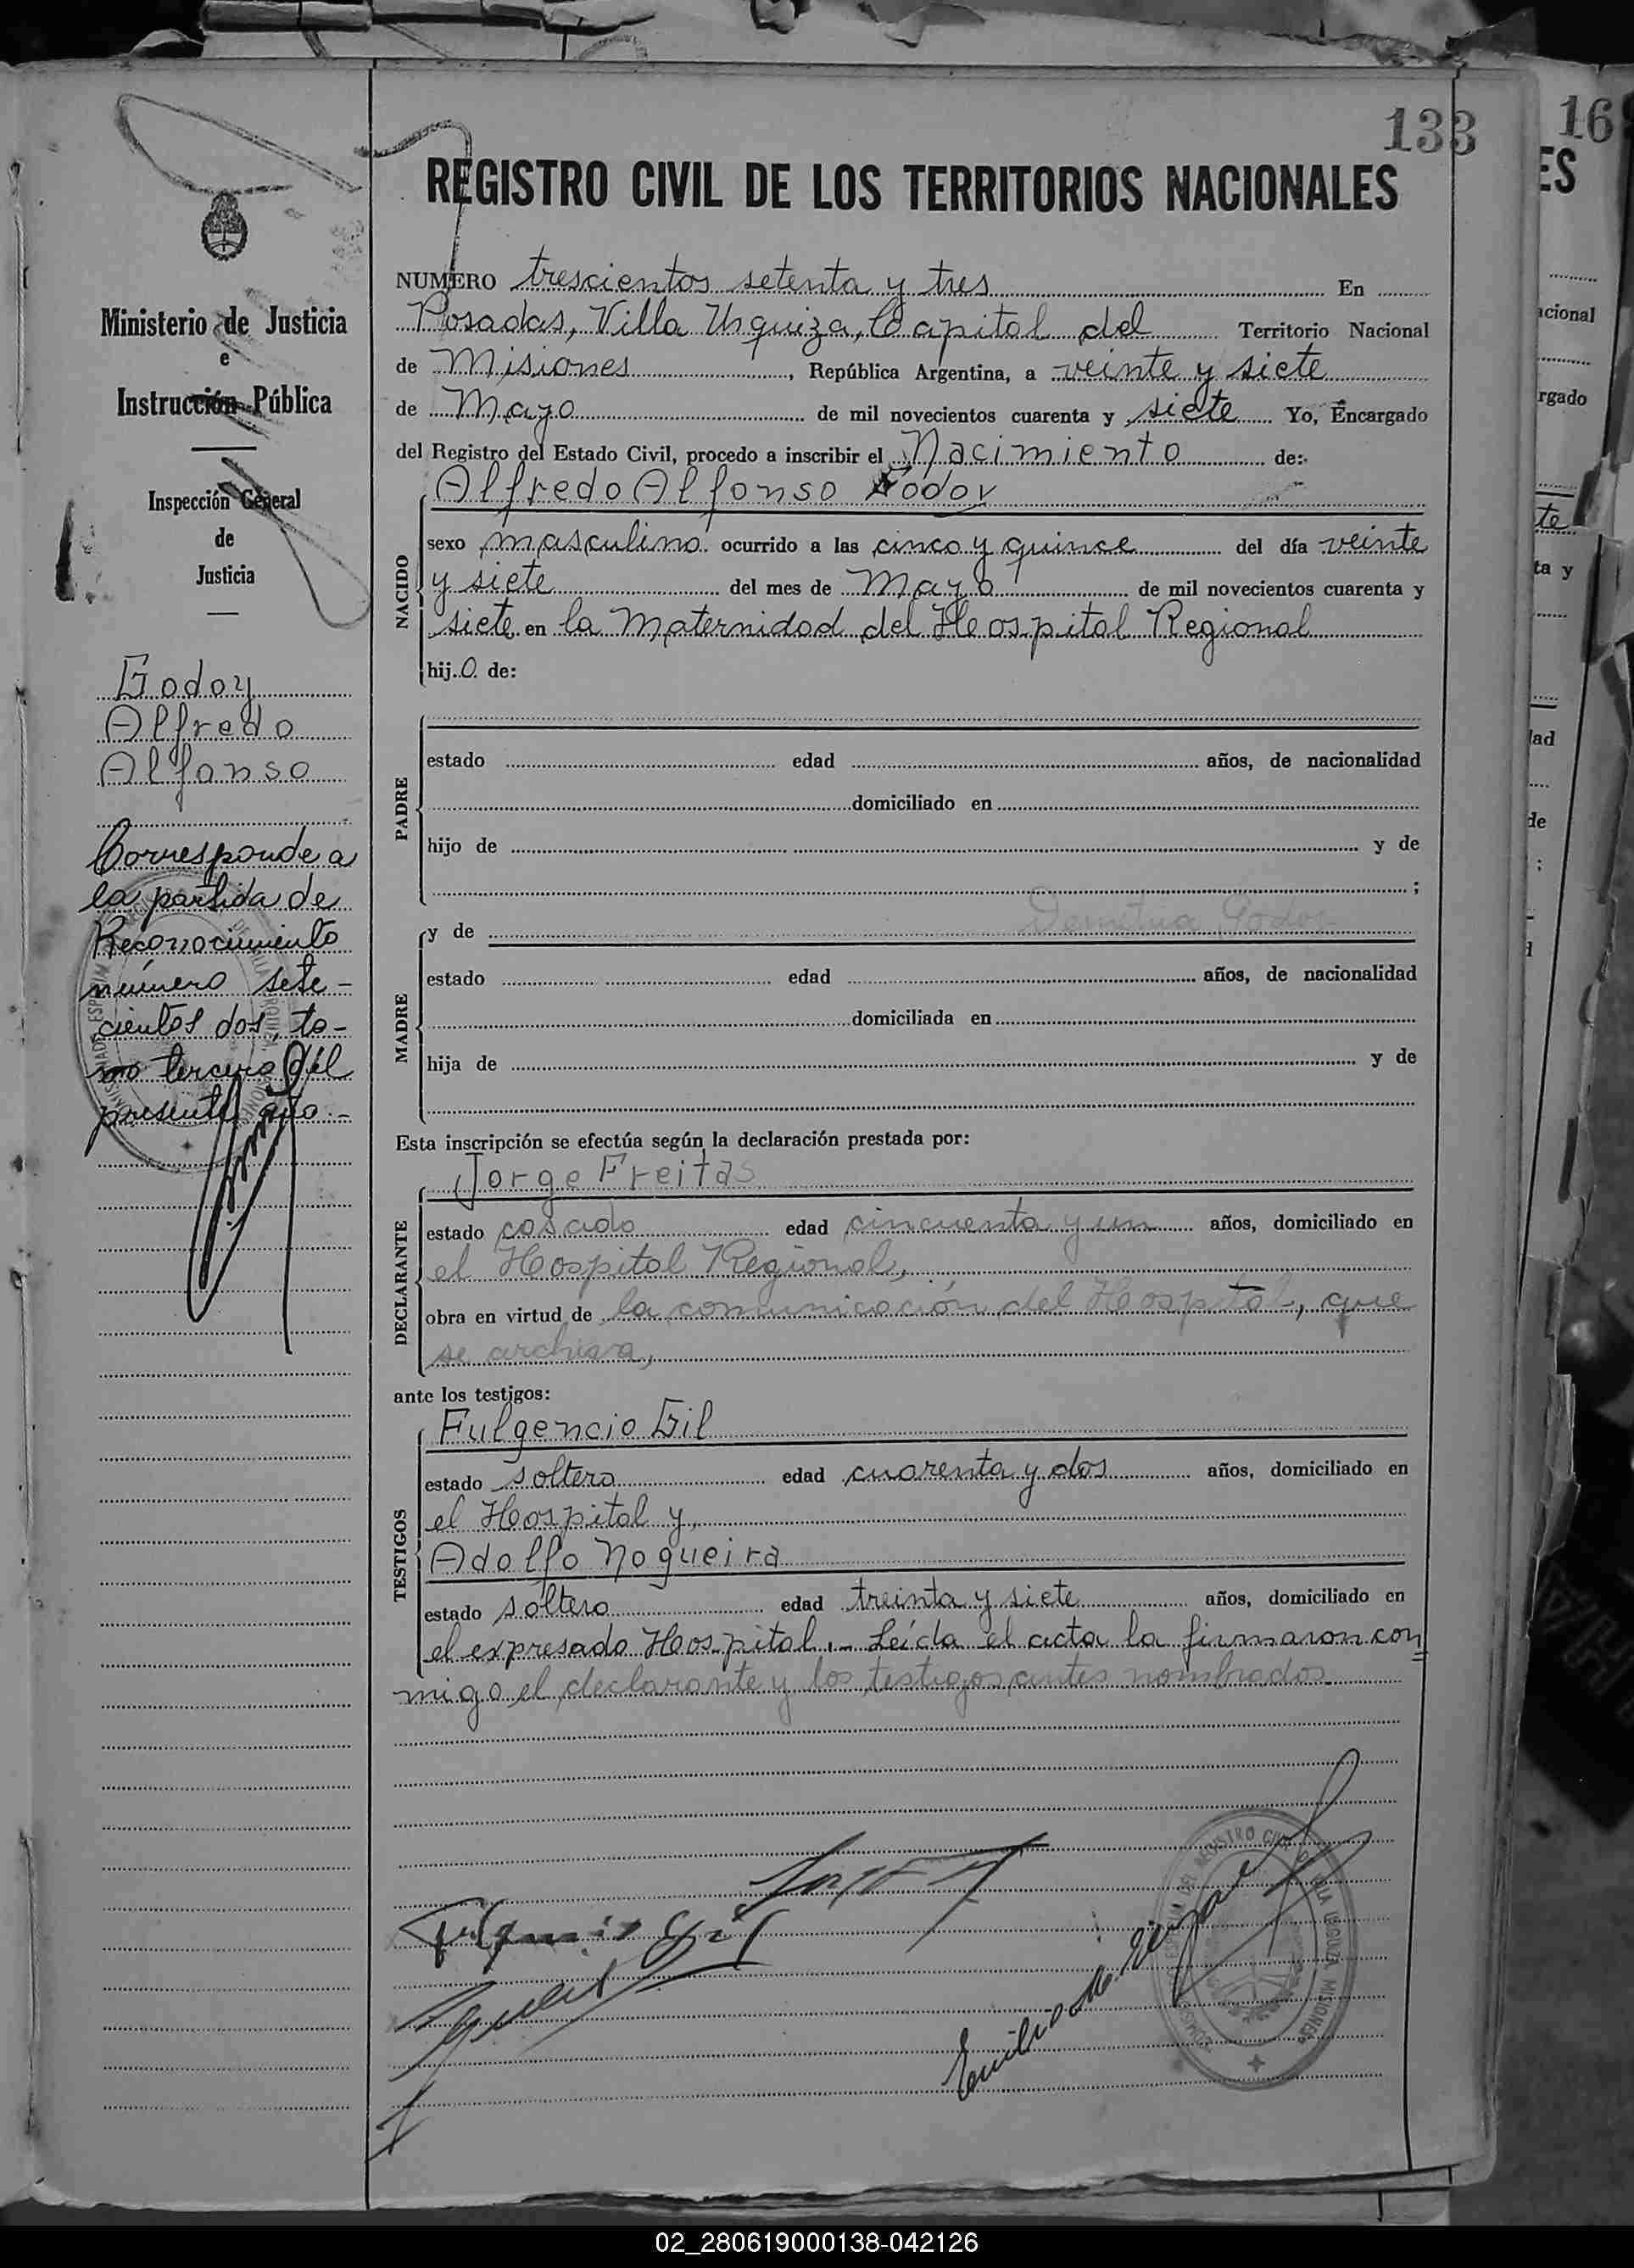 133
16
REGISTRO CIVIL DE LOS TERRITORIOS NACIONALES
ES
Ministerio de Justicia
e
Instrucción Pública
Inspección General
de
Justicia
Godoy
Alfredo
Alfonso
Corresponde a
la partida de
Reconocimiento
número sete-
cientos dos, to-
mo tercero del
presente año.-
NUMERO trescientos setenta y tres En
Posadas, Villa Urquiza, Capital del Territorio Nacional
de Misiones, República Argentina, a veinte y siete
de Mayo de mil novecientos cuarenta y siete Yo, Encargado
del Registro del Estado Civil, procedo a inscribir el Nacimiento de:
Alfredo Alfonso Godoy
NACIDO
sexo masculino ocurrido a las cinco y quince del día veinte
y siete del mes de Mayo de mil novecientos cuarenta y
siete en la Maternidad del Hospital Regional
hijo de:
PADRE
estado edad años, de nacionalidad
domiciliado en
hijo de y de
;
MADRE
y de Demetria Godoy
estado edad años, de nacionalidad
domiciliada en
hija de y de
Esta inscripción se efectúa según la declaración prestada por:
DECLARANTE
Jorge Freitas
estado casado edad cincuenta y un años, domiciliado en
el Hospital Regional,
obra en virtud de la comunicación del Hospital, que
se archiva,
ante los testigos:
TESTIGOS
Fulgencio Gil
estado soltero edad cuarenta y dos años, domiciliado en
el Hospital y,
Adolfo Nogueira
estado soltero edad treinta y siete años, domiciliado en
el expresado Hospital.- Leída el acta la firmaron con
migo el declarante y los testigos antes nombrados.
Fulgencio Gil
02_280619000138-042126